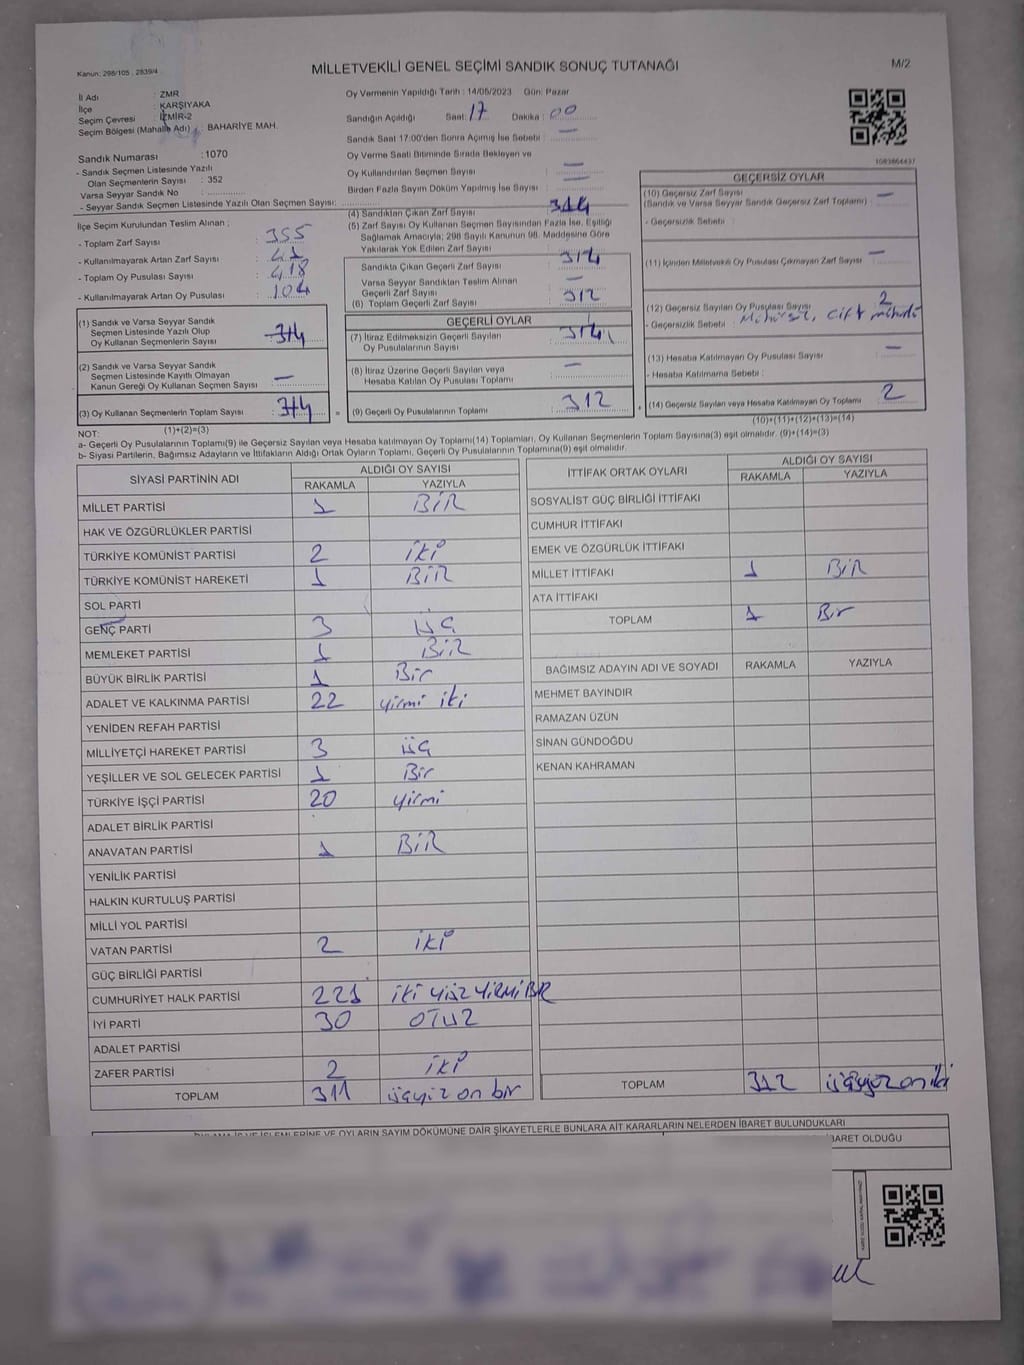 Kanun: 298/105 , 2839/4
MİLLETVEKİLİ GENEL SEÇİMİ SANDIK SONUÇ TUTANAĞI
M/2
İl Adı : ZMR
İlçe : KARŞIYAKA
Seçim Çevresi : İZMİR-2
Seçim Bölgesi (Mahalle Adı) : BAHARİYE MAH.
Sandık Numarası : 1070
- Sandık Seçmen Listesinde Yazılı
Olan Seçmenlerin Sayısı : 352
Varsa Seyyar Sandık No :
- Seyyar Sandık Seçmen Listesinde Yazılı Olan Seçmen Sayısı:
İlçe Seçim Kurulundan Teslim Alınan ;
- Toplam Zarf Sayısı : 355
- Kullanılmayarak Artan Zarf Sayısı : 41
- Toplam Oy Pusulası Sayısı : 418
- Kullanılmayarak Artan Oy Pusulası : 104
(1) Sandık ve Varsa Seyyar Sandık
Seçmen Listesinde Yazılı Olup
Oy Kullanan Seçmenlerin Sayısı : 314
(2) Sandık ve Varsa Seyyar Sandık
Seçmen Listesinde Kayıtlı Olmayan
Kanun Gereği Oy Kullanan Seçmen Sayısı : —
(3) Oy Kullanan Seçmenlerin Toplam Sayısı : 314
(1)+(2)=(3)
Oy Vermenin Yapıldığı Tarih : 14/05/2023 Gün: Pazar
Sandığın Açıldığı Saat: 17 Dakika : 00
Sandık Saat 17:00'den Sonra Açılmış İse Sebebi : —
Oy Verme Saati Bitiminde Sırada Bekleyen ve
Oy Kullandırılan Seçmen Sayısı : —
Birden Fazla Sayım Döküm Yapılmış İse Sayısı : —
(4) Sandıktan Çıkan Zarf Sayısı : 314
(5) Zarf Sayısı Oy Kullanan Seçmen Sayısından Fazla İse, Eşitliği
Sağlamak Amacıyla; 298 Sayılı Kanunun 98. Maddesine Göre
Yakılarak Yok Edilen Zarf Sayısı : —
Sandıkta Çıkan Geçerli Zarf Sayısı : 314
Varsa Seyyar Sandıktan Teslim Alınan
Geçerli Zarf Sayısı : —
(6) Toplam Geçerli Zarf Sayısı : 312
GEÇERLİ OYLAR
(7) İtiraz Edilmeksizin Geçerli Sayılan
Oy Pusulalarının Sayısı : 314
(8) İtiraz Üzerine Geçerli Sayılan veya
Hesaba Katılan Oy Pusulası Toplamı : —
= (9) Geçerli Oy Pusulalarının Toplamı : 312
1083864437
GEÇERSİZ OYLAR
(10) Geçersiz Zarf Sayısı
(Sandık ve Varsa Seyyar Sandık Geçersiz Zarf Toplamı) : —
- Geçersizlik Sebebi :
(11) İçinden Milletvekili Oy Pusulası Çıkmayan Zarf Sayısı : —
(12) Geçersiz Sayılan Oy Pusulası Sayısı : 2
- Geçersizlik Sebebi : Mühürsüz, çift mühürlü
(13) Hesaba Katılmayan Oy Pusulası Sayısı : —
- Hesaba Katılmama Sebebi :
(14) Geçersiz Sayılan veya Hesaba Katılmayan Oy Toplamı : 2
(10)+(11)+(12)+(13)=(14)
NOT:
a- Geçerli Oy Pusulalarının Toplamı(9) ile Geçersiz Sayılan veya Hesaba katılmayan Oy Toplamı(14) Toplamları, Oy Kullanan Seçmenlerin Toplam Sayısına(3) eşit olmalıdır. (9)+(14)=(3)
b- Siyasi Partilerin, Bağımsız Adayların ve İttifakların Aldığı Ortak Oyların Toplamı, Geçerli Oy Pusulalarının Toplamına(9) eşit olmalıdır.
SİYASİ PARTİNİN ADI ALDIĞI OY SAYISI
RAKAMLA YAZIYLA
MİLLET PARTİSİ 1 BİR
HAK VE ÖZGÜRLÜKLER PARTİSİ
TÜRKİYE KOMÜNİST PARTİSİ 2 İKİ
TÜRKİYE KOMÜNİST HAREKETİ 1 BİR
SOL PARTİ
GENÇ PARTİ 3 ÜÇ
MEMLEKET PARTİSİ 1 BİR
BÜYÜK BİRLİK PARTİSİ 1 Bir
ADALET VE KALKINMA PARTİSİ 22 yirmi iki
YENİDEN REFAH PARTİSİ
MİLLİYETÇİ HAREKET PARTİSİ 3 üç
YEŞİLLER VE SOL GELECEK PARTİSİ 1 Bir
TÜRKİYE İŞÇİ PARTİSİ 20 yirmi
ADALET BİRLİK PARTİSİ
ANAVATAN PARTİSİ 1 BİR
YENİLİK PARTİSİ
HALKIN KURTULUŞ PARTİSİ
MİLLİ YOL PARTİSİ
VATAN PARTİSİ 2 İKİ
GÜÇ BİRLİĞİ PARTİSİ
CUMHURİYET HALK PARTİSİ 221 İKİ YÜZ YİRMİ BİR
İYİ PARTİ 30 OTUZ
ADALET PARTİSİ
ZAFER PARTİSİ 2 İKİ
TOPLAM 311 üçyüz on bir
İTTİFAK ORTAK OYLARI ALDIĞI OY SAYISI
RAKAMLA YAZIYLA
SOSYALİST GÜÇ BİRLİĞİ İTTİFAKI
CUMHUR İTTİFAKI
EMEK VE ÖZGÜRLÜK İTTİFAKI
MİLLET İTTİFAKI 1 BİR
ATA İTTİFAKI
TOPLAM 1 Bir
BAĞIMSIZ ADAYIN ADI VE SOYADI RAKAMLA YAZIYLA
MEHMET BAYINDIR
RAMAZAN ÜZÜN
SİNAN GÜNDOĞDU
KENAN KAHRAMAN
TOPLAM 312 üçyüz on iki
İŞLEMLERİNE VE OYLARIN SAYIM DÖKÜMÜNE DAİR ŞİKAYETLERLE BUNLARA AİT KARARLARIN NELERDEN İBARET BULUNDUKLARI
İBARET OLDUĞU